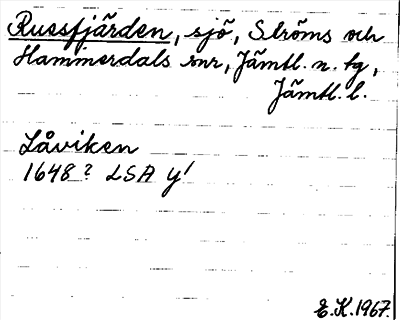 Russfjärden, sjö, Ströms och
Hammerdals snr, Jämtl. n. tg,
Jämtl. l.
Låviken
1648? LSA y'
E.K. 1967.